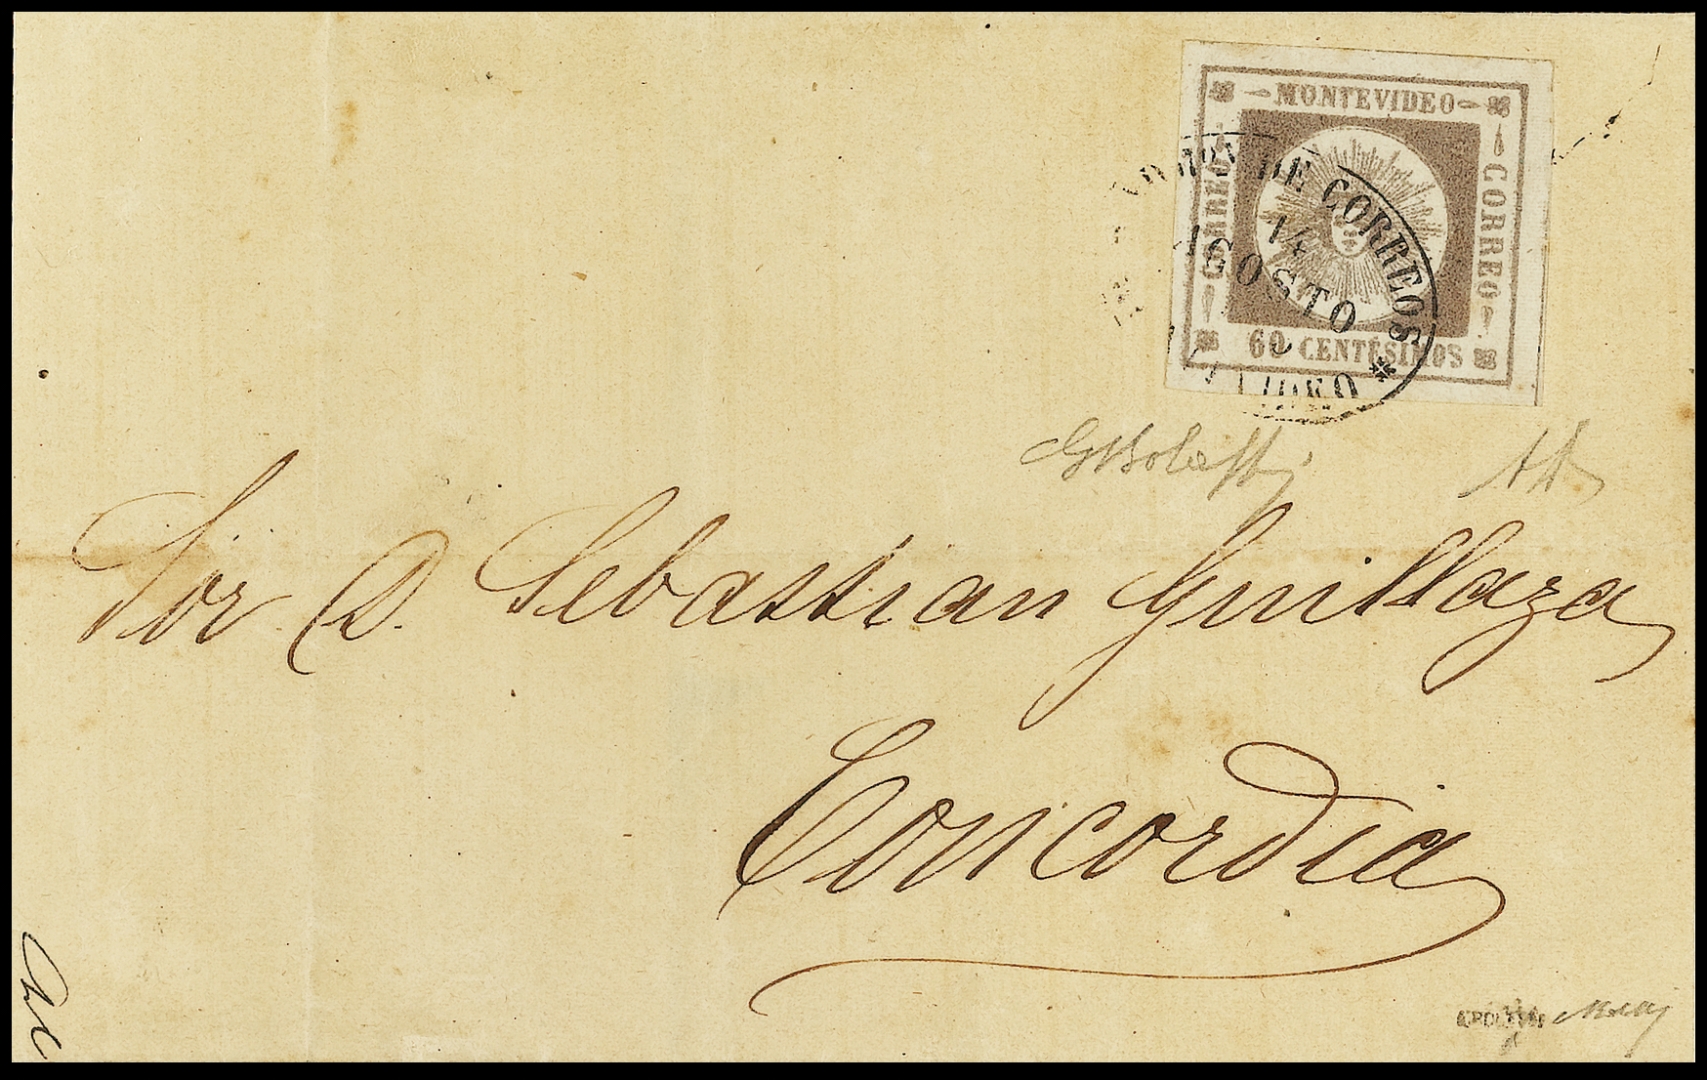 MONTEVIDEO
CORREO
CORREO
60 CENTÉSIMOS
DE CORREOS
14
AGOSTO
Sor D. Sebastian Guillaza
Concordia